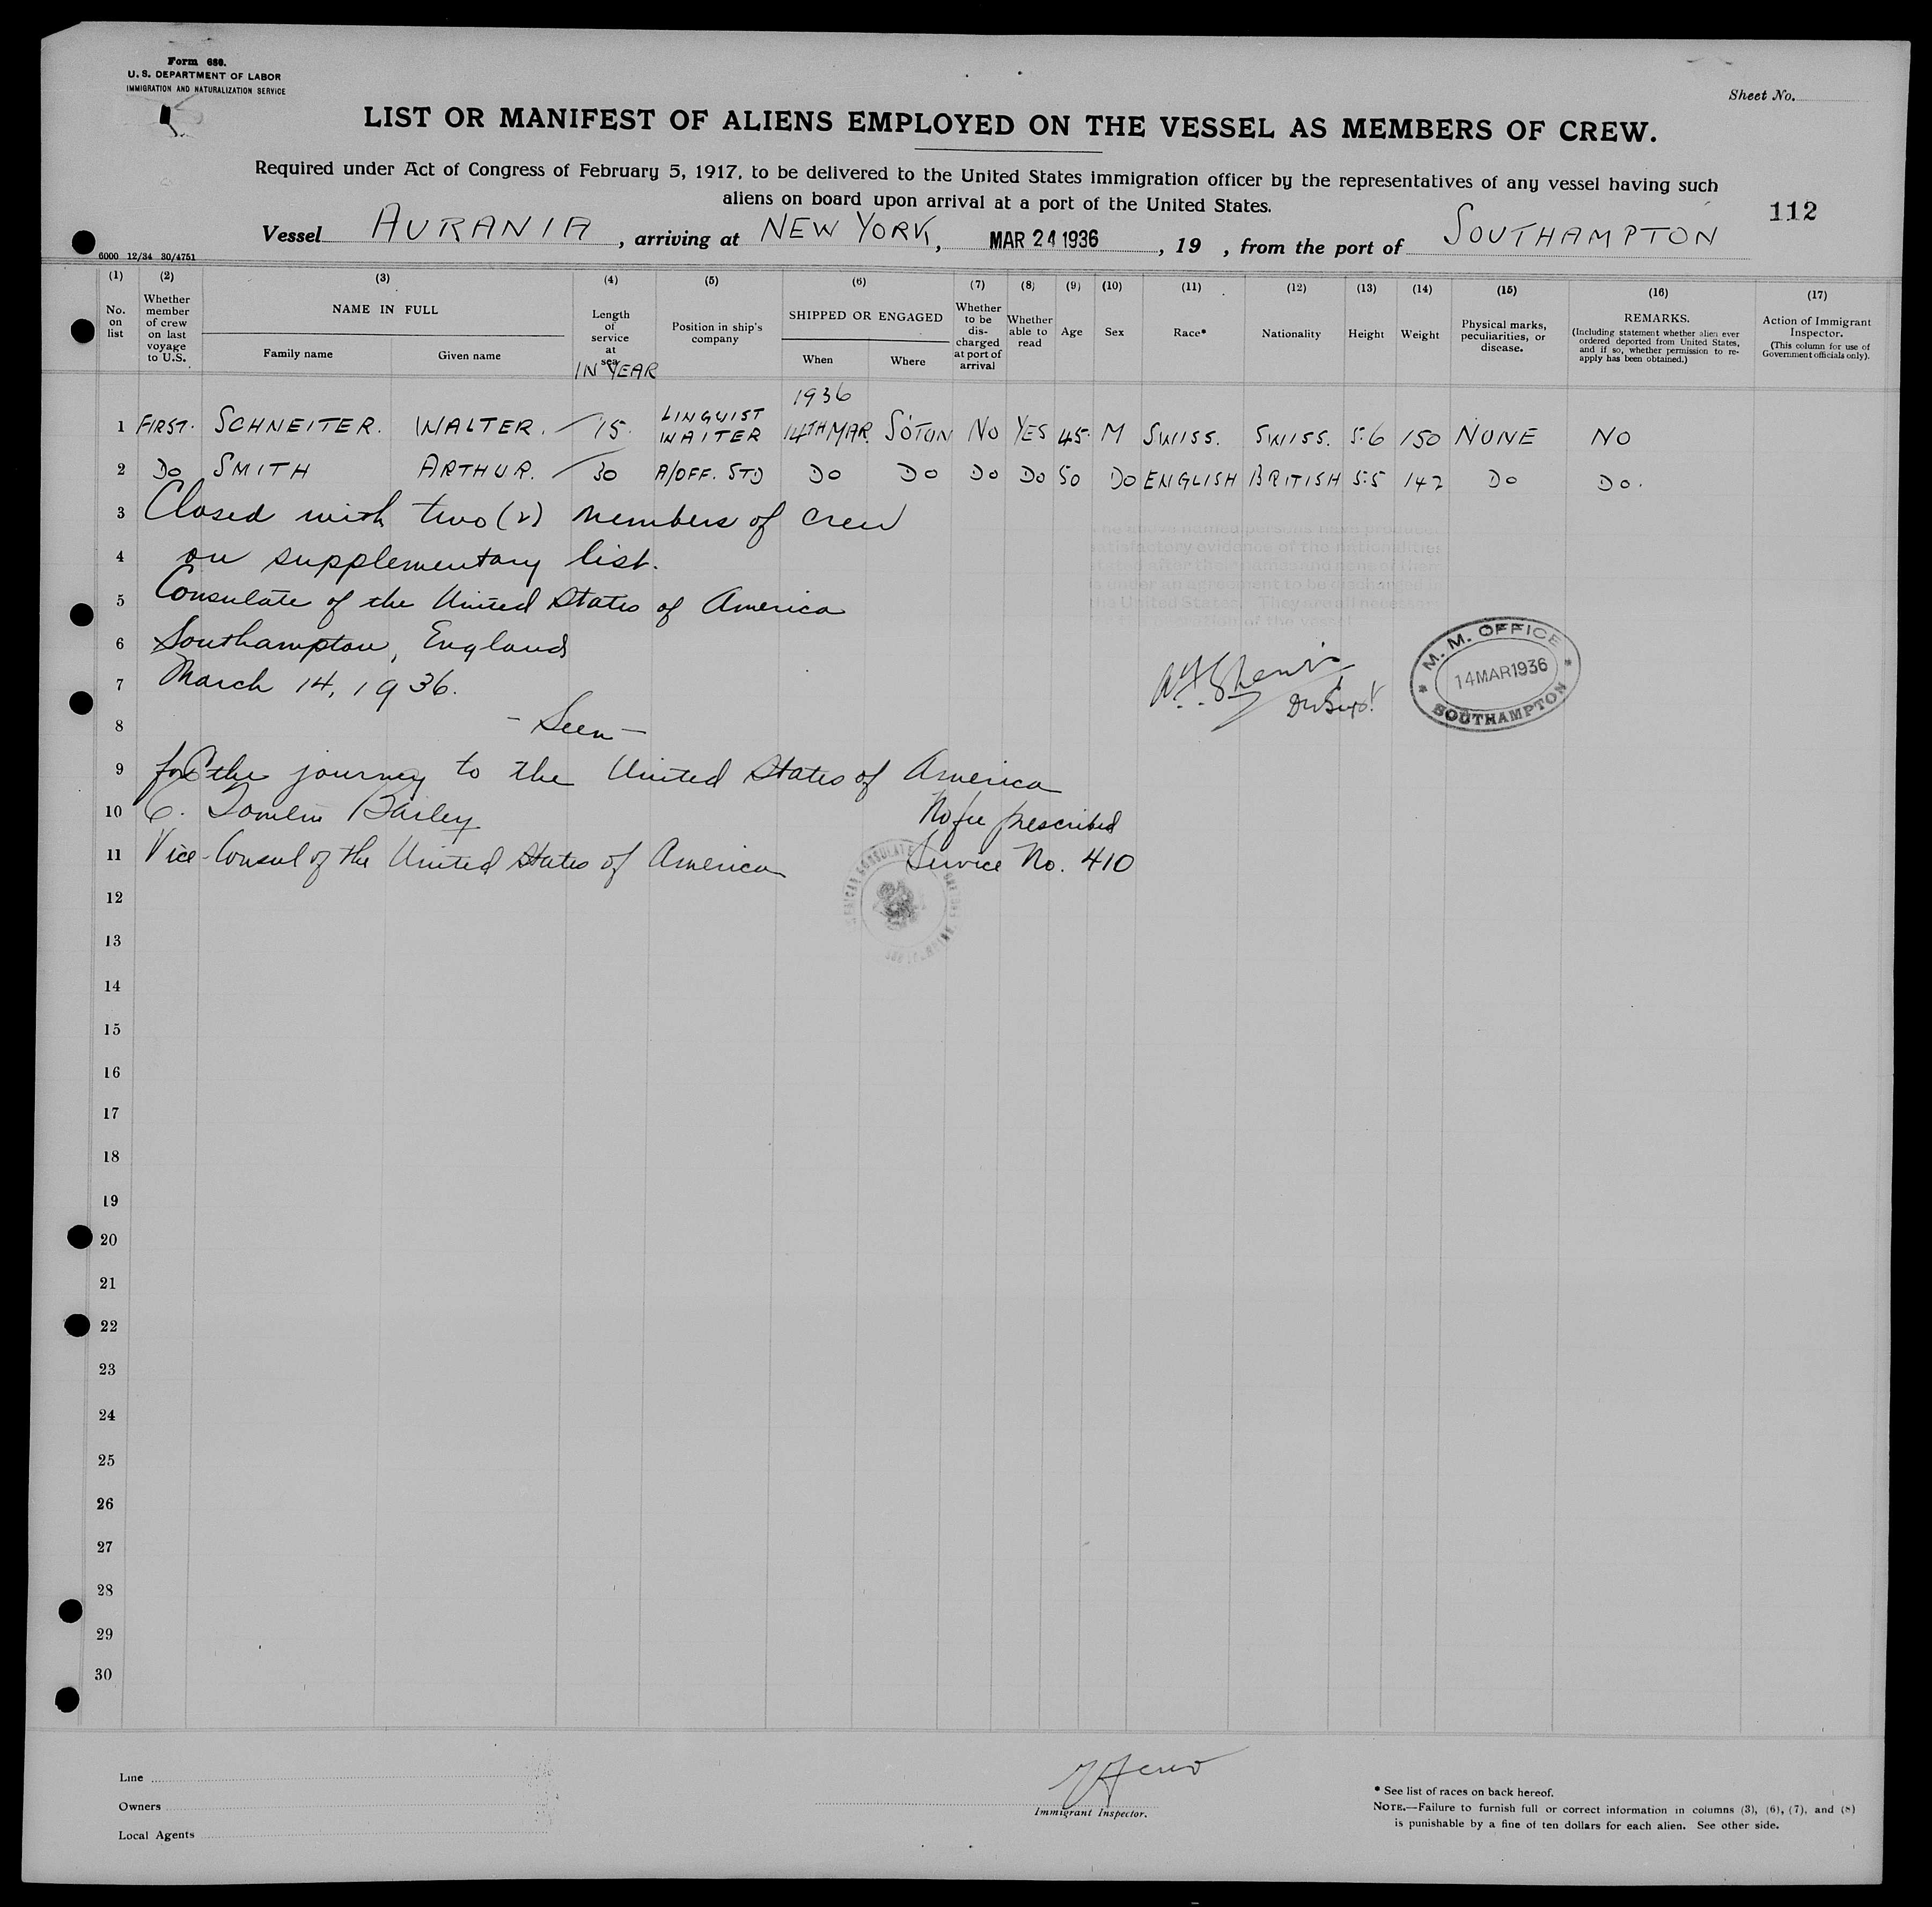 Form 680.
U. S. DEPARTMENT OF LABOR
IMMIGRATION AND NATURALIZATION SERVICE
Sheet No.
LIST OR MANIFEST OF ALIENS EMPLOYED ON THE VESSEL AS MEMBERS OF CREW.
Required under Act of Congress of February 5, 1917, to be delivered to the United States immigration officer by the representatives of any vessel having such
aliens on board upon arrival at a port of the United States.
112
Vessel AURANIA, arriving at NEW YORK, MAR 24 1936, 19 , from the port of SOUTHAMPTON
6000 12/34 30/4751
(1) (2) (3) (4) (5) (6) (7) (8) (9) (10) (11) (12) (13) (14) (15) (16) (17)
No. on list
Whether member of crew on last voyage to U.S.
NAME IN FULL
Family name Given name
Length of service at sea
IN YEAR
Position in ship's company
SHIPPED OR ENGAGED
When Where
Whether to be discharged at port of arrival
Whether able to read
Age
Sex
Race*
Nationality
Height
Weight
Physical marks, peculiarities, or disease.
REMARKS.
(Including statement whether alien ever ordered deported from United States, and if so, whether permission to re-apply has been obtained.)
Action of Immigrant Inspector.
(This column for use of Government officials only).
1936
1 FIRST. SCHNEITER. WALTER. 15. LINGUIST WAITER 14TH MAR. SOTON NO YES 45. M SWISS. SWISS. 5:6 150 NONE NO
2 DO SMITH ARTHUR. 30 A/OFF. STD DO DO DO DO 50 DO ENGLISH BRITISH 5:5 142 DO DO.
3 Closed with two (2) members of crew
4 on supplementary list.
5 Consulate of the United States of America
6 Southampton, England
7 March 14, 1936.
8 - Seen -
9 for the journey to the United States of America
10 C. Tomlin Bailey No fee prescribed
11 Vice-Consul of the United States of America Service No. 410
The above named persons have produced
satisfactory evidence of the nationalities
stated after their names and none of them
is under an agreement to be discharged in
the United States. They are all necessary
operation of the vessel
M. M. OFFICE
14 MAR 1936
SOUTHAMPTON
AMERICAN CONSULATE
12
13
14
15
16
17
18
19
20
21
22
23
24
25
26
27
28
29
30
Line
Owners
Local Agents
Immigrant Inspector.
* See list of races on back hereof.
NOTE.—Failure to furnish full or correct information in columns (3), (6), (7), and (8)
is punishable by a fine of ten dollars for each alien. See other side.